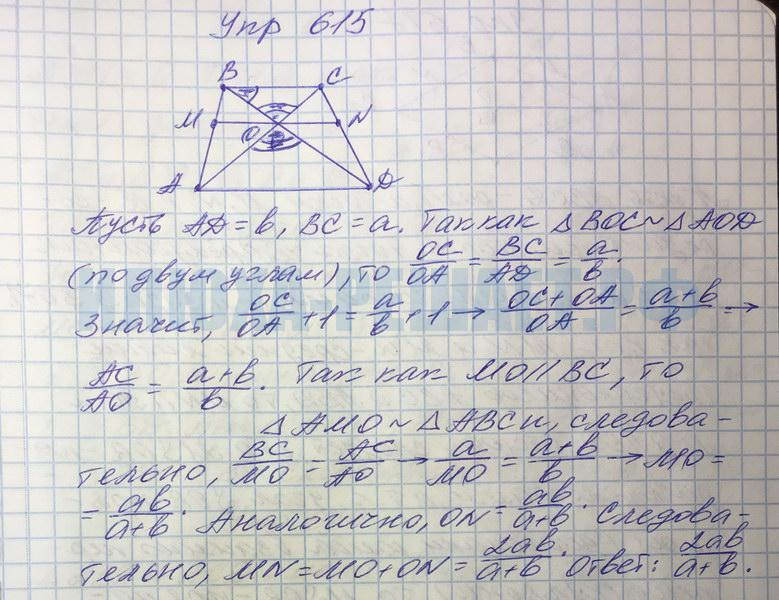 Упр 615
B C
M N
O
A D
Пусть AD = b, BC = a. Так как △BOC ~ △AOD
(по двум углам), то OC/OA = BC/AD = a/b.
Значит, OC/OA + 1 = a/b + 1 → OC + OA/OA = a+b/b →
AC/AO = a+b/b. Так как MO // BC, то
△AMO ~ △ABC и, следова-
тельно, BC/MO = AC/AO → a/MO = a+b/b → MO =
= ab/a+b. Аналогично, ON = ab/a+b. Следова-
тельно, MN = MO + ON = 2ab/a+b. Ответ: 2ab/a+b.